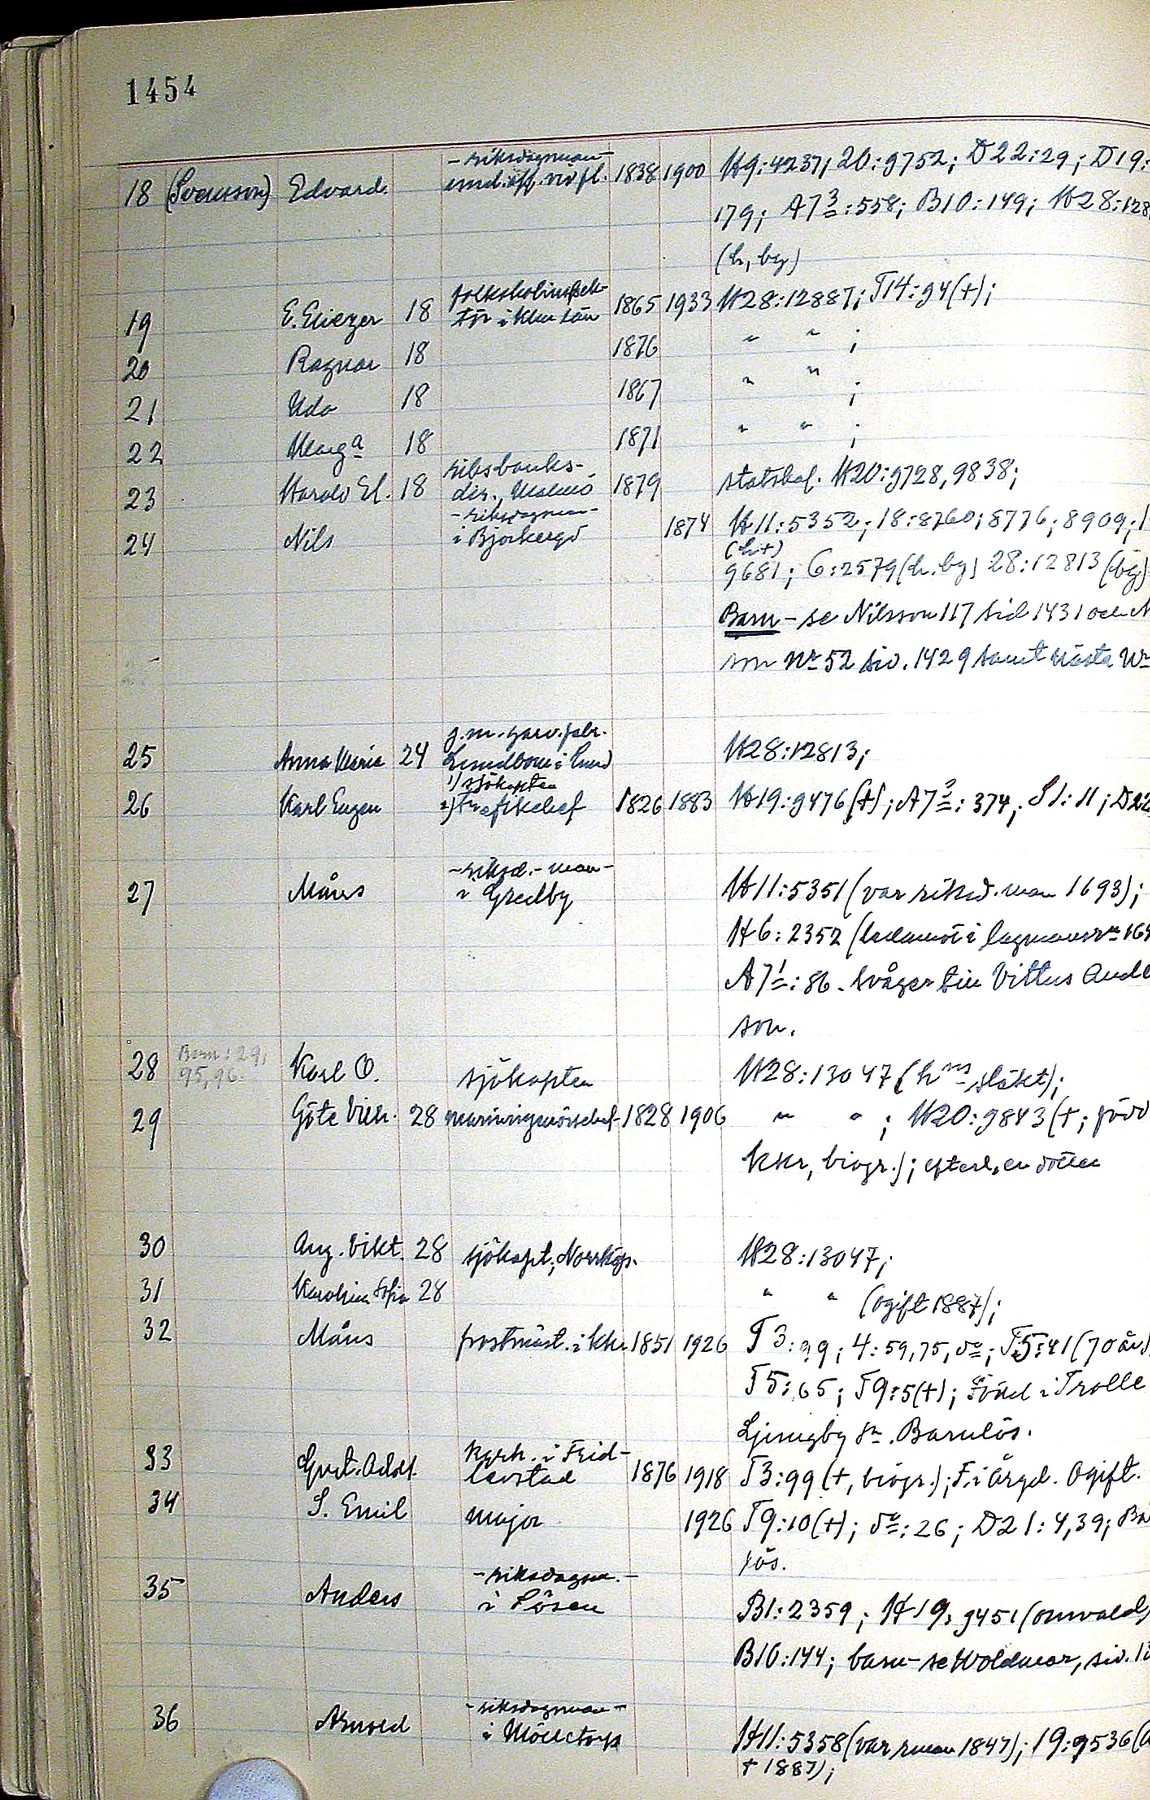 1454
18 (Svensson) Edvard. -riksdagsman- 1838 1900 H9:4237; 20:9752; D22:29; D19:
179; A7 3: 558; B10:149; H28:128
(h, by)
19 E. Eliezer 18 folkskolinspek- tör i Klm län 1865 1933 H28:12887; T14:94(+);
20 Ragnar 18 1876 " " ;
21 Udo 18 1867 " " ;
22 Marga 18 1871 " " ;
23 Harald El. 18 riksbanks- dir., Malmö 1879 statskal. H20:9728, 9838;
24 Nils -riksdagsman- i Björkeryd 1874 H11:5352; 18:8760; 8776; 8909;
(h+)
9681; 6:2579 (h. by) 28:12813 (by)
Barn - se Nilsson 117 sid 1431 och N
son Nr 52 sid. 1429 samt nästa Nr
25 Anna Maria 24 g.m. garv.fabr. Lundbom i Lund H28:12813;
26 Karl Eugen 1) sjökapten 2) Trafikchef 1826 1883 H19:9476 (+); A7 3: 374; S1:11; D22
27 Måns -riksd.-man- i Gredby H11:5351 (var riksd.man 1693);
H6:2352 (ledamot i lagmansrn 169
A7 1: 86. Svåger till Vittus Ande
son.
28 Barn: 29, 95, 96. Karl O. sjökapten H28:13047 (hns släkt);
29 Göte Vilh. 28 mariningeniörschef 1828 1906 " " ; H20:9843 (+; född
kkr, biogr.); efterl. en dotter
30 Aug. Vikt. 28 sjökapt., Norrköp. H28:13047;
31 Karolina Sofia 28 " " (ogift 1887);
32 Måns postmäst. i kkr 1851 1926 T3:99; 4:59, 75, 80; T5:41 (70 år)
T5:65; T9:5(+); Född i Trolle
Ljungby sn. Barnlös.
33 Gust. Adolf. kyrh. i Frid- levstad 1876 1918 T3:99 (+, biogr.); F. i Åryd. Ogift.
34 S. Emil major 1926 T9:10(+); 5: 26; D21:4, 39; Ba
lös.
35 Anders -riksdagsm.- i Lösen B1:2359; H19:9451 (omvald,
B10:144; barn-se Woldmar, sid. 1
36 Arnold -riksdagsman- i Mölletorp H11:5358 (var rman 1847); 19:9536 (
+ 1887);